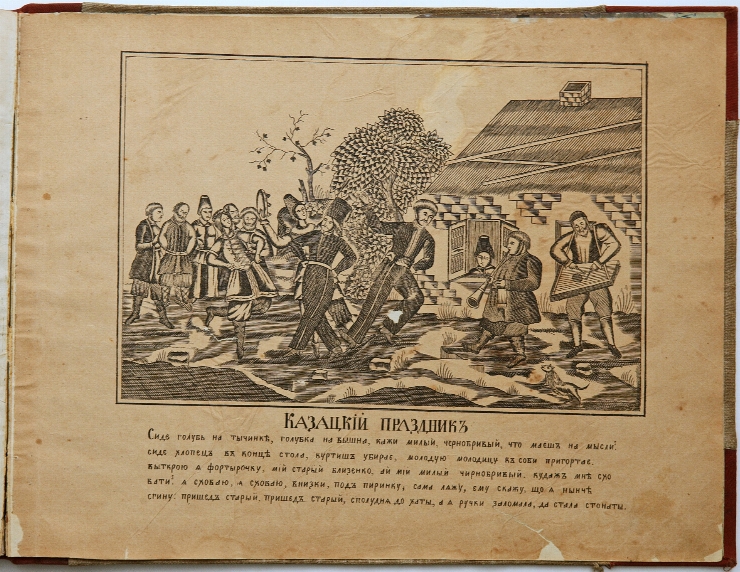 КАЗАЦКІЙ ПРАЗДНИКЪ
Сидѣ голубь на тычинкѣ, голубка на вышна, кажи милый, чернобривый, что маешъ на мысли?
сиде хлопецъ въ концѣ стола, куртишъ убирае, молодую молодицу къ соби пригортае,
выткрою а фортырочку, мій старый близенко, ай мій милый чирнобривый, кудажъ мнѣ схо
вати? а сховаю, а сховаю, внизки, подъ пиринку, сама лажу, ему скажу, що а нынчѣ
сгину: пришедъ старый, пришедъ старый, сполудна до хаты, а а ручки заломала, да стала стонаты.